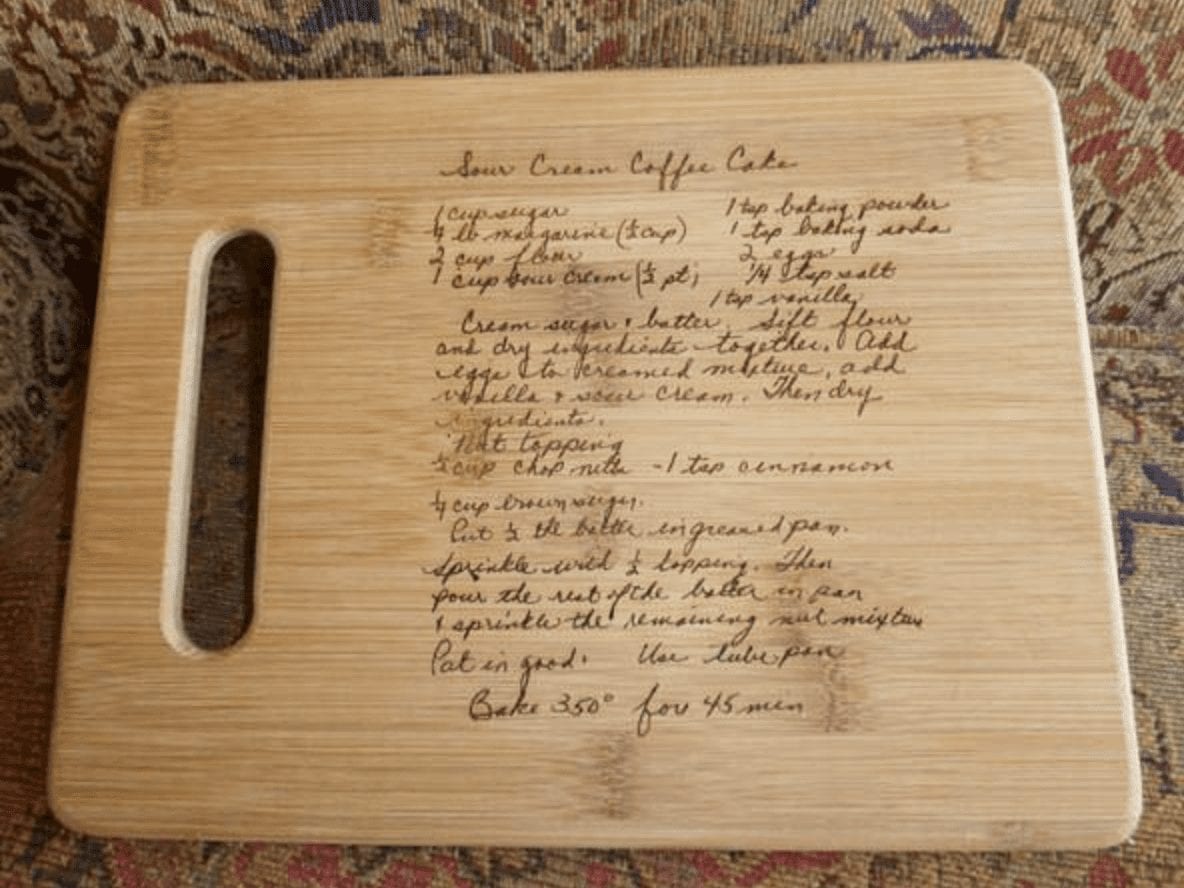 Sour Cream Coffee Cake
1 cup sugar 1 tsp baking powder
¼ lb margarine (½ cup) 1 tsp baking soda
2 cup flour 2 eggs
1 cup sour cream (½ pt) ¼ tsp salt
1 tsp vanilla
Cream sugar & butter. Sift flour
and dry ingredients together. Add
eggs to creamed mixture, add
vanilla & sour cream. Then dry
ingredients.
Nut topping
cup chop nuts - 1 tsp cinnamon
¼ cup brown sugar.
Put ½ the batter in greased pan.
Sprinkle with ½ topping. Then
pour the rest of the batter in pan
& sprinkle the remaining nut mixture
Pat in good. Use tube pan
Bake 350° for 45 min